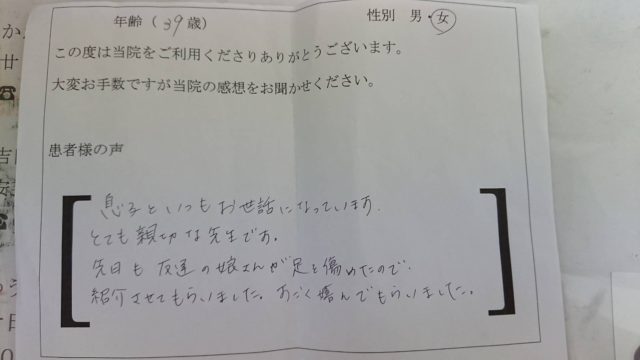 年齢（39歳） 性別 男・女
この度は当院をご利用くださりありがとうございます。
大変お手数ですが当院の感想をお聞かせください。
患者様の声
息子といつもお世話になっています.
とても親切な先生です。
先日も友達の娘さんが足を傷めたので.
紹介させてもらいました。すごく喜んでもらいました。